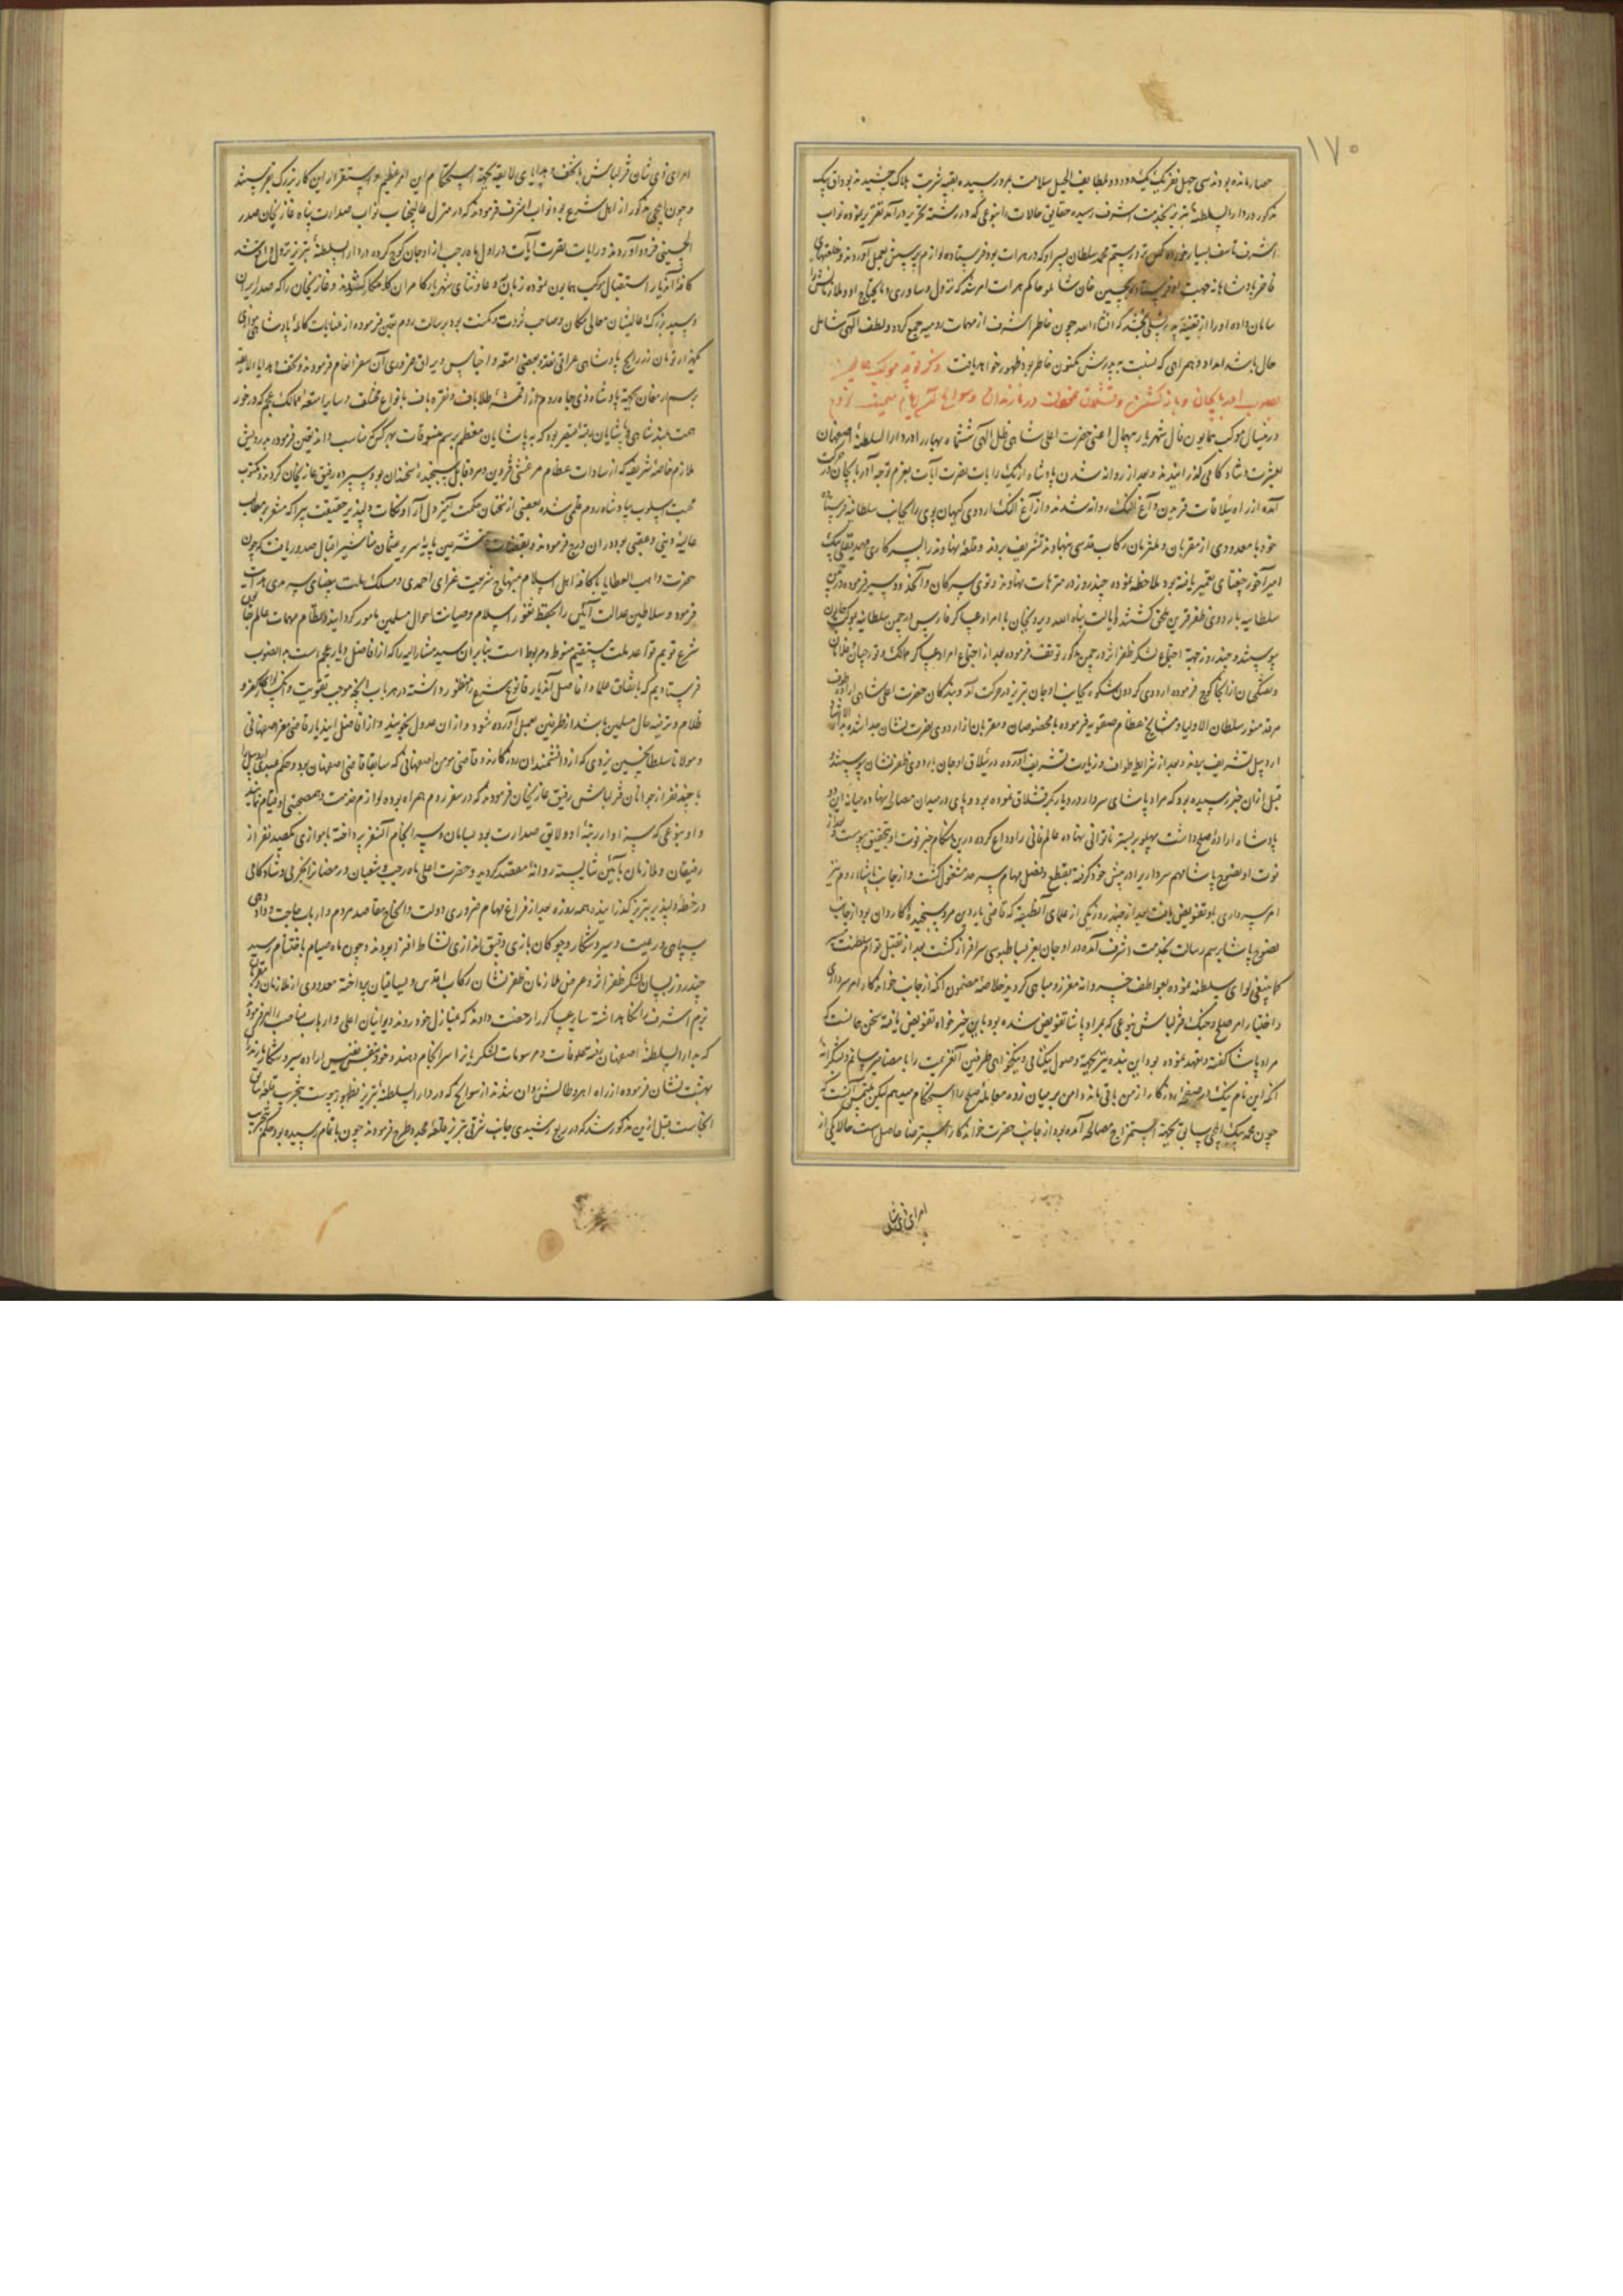 ۱۷۰
حصار مانده بودند سی چهل نفر یک یک و دو دو بلطایف الحیل سلامت بدر رسیده بقیه شربت هلاک چشیدند بوداق بیک
مذکور در دار السلطنهٔ تبریز بخدمت اشرف رسیده حقایق حالات را بنوعی که در رشته تحریر درآمد تقریر نموده نواب
اشرف تاسف بسیار خورده کس نزد رستم محمد سلطان پسر او که در هرات بود فرستاده لوازم پرسش بعمل آوردند و خلعتهای
فاخر پادشاهانه جهت او فرستاده بحسین خان شاملو حاکم هرات امر شد که نزول و ساوری و مایحتاج او و ملازمانش را
سامان داده او را از قضیه پدر تسلی بخشد که انشاء الله چون خاطر اشرف از مهمات رومیه جمع گردد و لطف الهی شامل
حال باشد امداد و همراهی که نسبت به پدرش مکنون خاطر بود بظهور خواهد یافت ذکر توجه موکب
بصوب آذربایجان و بازگشتن و قشلاق نمودن در مازندران و سوانح که در آن ایام سمت ظهور
درینسال موکب همایون فال شهریار بیهمال اعنی حضرت اعلی شاهی ظل الهی شش ماه بهار را در دار السلطنهٔ اصفهان
بعشرت و شادکامی گذرانیدند و بعد از روانه شدن پادشاه ازبک رایات نصرت آیات بعزم توجه آذربایجان در حرکت
آمده از راه ییلاقات قزوین و آغ النک روانه شدند و از آغ النک اردوی کیهان پوی را بجانب سلطانیه فرستاده
خود با معدودی از مقربان و ملتزمان رکاب قدسی بنهاوند تشریف بردند و قلعه نهاوند را بسرکاری مهدیقلی بیک
امیر آخور چغتای تعمیر یافته بود ملاحظه نموده چند روز در متنزهات نهاوند و توی سرکان و آنحدود سیر فرموده در چمن
سلطانیه باردوی ظفر قرین ملحق گشتند ایالت پناه الله ویردیخان با امرا و عساکر فارس در چمن سلطانیه بموکب همایون
پیوستند و چند روز جهة اجتماع لشکر ظفر اثر در چمن مذکور توقف فرموده بعد از اجتماع امرا و عساکر ممالک و قورچیان و غلامان
و تفنگچیان از آنجا کوچ فرموده اردوی گردون شکوه بجانب اوجان تبریز در حرکت آمد و بندگان حضرت اعلی شاهی اراده طواف
مرقد منور سلطان الاولیا و مشایخ عظام صفویه فرموده با مخصوصان و مقربان از اردوی نصرت نشان جدا شده بدار الارشاد
اردبیل تشریف بردند و بعد از شرایط طواف و زیارت تشریف آورده در ییلاق اوجان باردوی ظفر نشان پیوستند
قبل از آن خبر رسیده بود که مراد پاشای سردار در دیار بکر قشلاق نموده بود و پای در میدان مصالح نهاده میانه این دو
پادشاه اراده صلح داشت پهلو بر بستر ناتوانی نهاده عالم فانی را وداع کرده درین هنگام خبر فوت او بتحقیق پیوست و بعد از
فوت او نصوح پاشا مهم سرداری را در پیش خود گرفته بقطع و فصل مهام سرحد مشغول گشت و از جانب پادشاه روم نیز
امر سرداری باو تفویض یافت بعد از چند روز یکی از علمای آنطبقه که قاضی ماردین مرد سنجیدهٔ کاردان بود از جانب
نصوح پاشا برسم رسالت بخدمت اشرف آمده در اوجان بعز بساط بوسی سرافراز گشت بعد از تقبیل قوایم سلطنت
کماینبغی لوای سلطنه نموده بعواطف خسروانه معزز و مباهی گردید خلاصهٔ مضمون آنکه از جانب خواندگار امر سرداری
و اختیار امر صلح و جنگ قزلباش بنوعی که بمراد پاشا تفویض شده بود باین خیرخواه تفویض یافته سخن همانست که
مراد پاشا گفته و تعهد نموده بود این بنده نیز بجهة وصول نیکنامی و نیکخواهی طرفین آنعزیمت را بامضا میرسانم و بشکرانهٔ
آنکه این نام نیک در صفحهٔ روزگار از من باقی ماند دامن بر میان زده معاملهٔ صلح را استحکام میدهم لیکن ملتمس آنست که
چون محمد بیک ایلچی سابق بجهة استمزاج مصالحه آمده بود از جانب حضرت خواندگار استرضا حاصلست حالا یکی از
امرای ذی شان
امرای ذی شان قزلباش با تحف و هدایای لایقه بجهة استحکام این امر عظیم و استقرار این کار بزرگ بفرستند
و چون ایلچی مذکور از اهل شرع بود نواب اشرف فرمودند که در منزل عالیجناب نواب صدارت پناه قاضی خان صدر
الحسینی فرود آوردند و رایات نصرت آیات در اول ماه رجب از اوجان کوچ کرده در دار السلطنهٔ تبریز نزول واقع شد
کافهٔ آندیار استقبال موکب همایون نموده زبان بدعا و ثنای شهریار کامران گشودند و قاضی خان را که صدر ایران
و سید بزرگ عالیشان معالی مکان و صاحب ثروت و مکنت بود برسالت روم تعیین فرموده از عنایات کاملهٔ پادشاهی موازی
یکهزار تومان زر رایج پادشاهی عراقی نقد و بعضی امتعه و اجناس و یراق ضروری آن سفر انعام فرمودند و تحف و هدایا لایقه
برسم ارمغان بجهة پادشاه ذی جاه روم از اقمشهٔ طلاباف و نقره باف بانواع مختلف و سایر امتعهٔ ممالک عجم که در خور
همت بلند شاهی و شایان رتبهٔ قیصری بود که به پاشایان معظم برسم سوقات بهر کس مناسب داند تعیین فرموده بدرویش
ملازم خاصهٔ شریفه که از سادات عظام مرعشی قزوین و مرد قابل سنجیدهٔ سخندان بود سپرده رفیق قاضی خان کردند و مکتوب
محبت اسلوب بپادشاه روم قلمی شده بعضی از سخنان حکمت آمیز دل آرا و نکات دلپذیر حقیقت پیرا که مشعر بر مطالب
عالیه دینی و عقبی بود در آن درج فرمودند و بعثمان حشمت مبین پایهٔ سریر عثمان مناشیر اقبال صدور یافت که چون
حضرت واهب العطایا کافهٔ اهل اسلام بمنهاج شریعت غرای احمدی و مسلک ملت بیضای سرمدی هدایت
فرمود و سلاطین عدالت آیین را بحفظ ثغور اسلام و صیانت احوال مسلمین مامور گردانیده انتظام مهمات عالم بقانون
شرع قویم قواعد ملت مستقیم منوط و مربوط است بنابر آن سید مشار الیه را که از افاضل دیار عجم است بدانصوب
فرستادیم که باتفاق علما و افاضل آندیار قانون شرع را منظور داشته در هر باب آنچه موجب تقویت و تنکیب لوای کفر و
ظلام و ترفیه حال مسلمین باشد از طرفین بعمل آورده شود و از آن عدول نجویند و از افاضل ایندیار قاضی معز اصفهانی
و مولانا سلطان حسین یزدی که از دانشمندان روزگارند و قاضی مومن اصفهانی که سابقا قاضی اصفهان بود و حکیم عبدی اردبیلی
با چند نفر از جوانان قزلباش رفیق قاضی خان فرمودند که در سفر روم همراه بوده لوازم خدمت و همصحبتی او قیام نمایند
و او بنوعی که سزاوار رتبهٔ او و لایق صدارت بود بسامان و سرانجام آنسفر پرداخته با موازی یکصد نفر از
رفیقان و ملازمان بآئین شایسته روانهٔ مقصد گردید و حضرت اعلی ماه رجب و شعبان و رمضان را بخرمی و شادکامی
در خطهٔ دلپذیر تبریز گذرانیده همه روزه بعد از فراغ مهام ضروری دولت و انجاح مقاصد مردم و ارباب حاجت و دادخواهی
سپاهی و رعیت و سیر و شکار و چوگان بازی و قبق اندازی نشاط افزا بودند و چون ماه صیام باختتام رسید
چند روز بسان لشکر ظفر اثر و عرض ملازمان ظفر نشان رکاب اقدس و سپاهیان پرداخته معدودی از ملازمان و مقربان
بزم اشرف را نگاهداشته سایر عساکر را رخصت دادند که بمنازل خود روند و دیوانیان اعلی و ارباب مناصب را امر فرمودند
که بدار السلطنهٔ اصفهان رفته علوفات و مرسومات لشکریان را سرانجام دهند و خود بنفس نفیس اراده سیر و شکار مازندران
بهشت نشان فرموده از راه اهر و طالش روان شدند از سوانح که در دار السلطنهٔ تبریز بظهور پیوست تخریب قلعهٔ شاهی
آنجاست قبل ازین مذکور شد که در ربع رشیدی جانب شرقی تبریز قلعه مجدد طرح فرمودند چون باتمام رسیده بود حکم تخریب